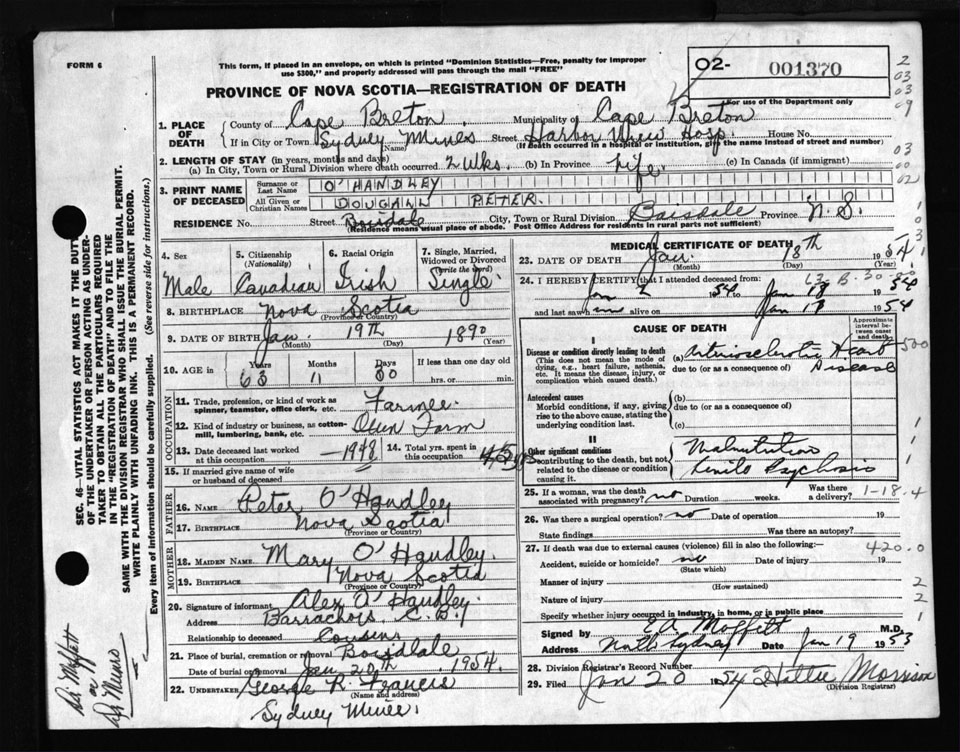 FORM 6
This form, if placed in an envelope, on which is printed "Dominion Statistics—Free, penalty for improper
use $300," and properly addressed will pass through the mail "FREE"
02- 001370
For use of the Department only
PROVINCE OF NOVA SCOTIA—REGISTRATION OF DEATH
1. PLACE OF DEATH
County of Cape Breton Municipality of Cape Breton
If in City or Town Sydney Mines Street Harbor View Hosp. House No.
(Name) (If death occurred in a hospital or institution, give the name instead of street and number)
2. LENGTH OF STAY (in years, months and days)
(a) In City, Town or Rural Division where death occurred 2 wks. (b) In Province Life. (c) In Canada (if immigrant)
3. PRINT NAME OF DECEASED
Surname or Last Name O'HANDLEY
All Given or Christian Names DOUGALL PETER.
RESIDENCE No. Street Boisdale City, Town or Rural Division Boisdale Province N.S.
(Residence means usual place of abode. Post Office Address for residents in rural parts not sufficient)
4. Sex
Male
5. Citizenship (Nationality)
Canadian
6. Racial Origin
Irish
7. Single, Married, Widowed or Divorced (write the word)
Single
8. BIRTHPLACE Nova Scotia
(Province or Country)
9. DATE OF BIRTH Jan 19th 1890
(Month) (Day) (Year)
10. AGE in Years Months Days If less than one day
63 11 30 hrs. or min.
OCCUPATION
11. Trade, profession, or kind of work as
spinner, teamster, office clerk, etc. Farmer
12. Kind of industry or business, as cotton-
mill, lumbering, bank, etc. Own Farm
13. Date deceased last worked
at this occupation 1948
14. Total yrs. spent in
this occupation
15. If married give name of wife
or husband of deceased
FATHER
16. Name Peter O'Handley
17. Birthplace Nova Scotia
(Province or Country)
MOTHER
18. MAIDEN NAME Mary O'Handley.
19. BIRTHPLACE Nova Scotia
(Province or Country)
20. Signature of informant Alex O'Handley.
Address Barrachois, C.B.
Relationship to deceased Cousins
21. Place of burial, cremation or removal Boisdale
Date of burial or removal Jan 20th 1954.
22. UNDERTAKER George R. Francis
(Name and address)
Sydney Mines.
MEDICAL CERTIFICATE OF DEATH
23. DATE OF DEATH Jan. 18th 1954
(Month) (Day) (Year)
24. I HEREBY CERTIFY that I attended deceased from:
Jan 2 1954 to Jan 18 1954
and last saw him alive on Jan 18 1954
CAUSE OF DEATH
Approximate interval between onset and death
I
Disease or condition directly leading to death
(This does not mean the mode of
dying, e.g., heart failure, asthenia,
etc. It means the disease, injury, or
complication which caused death.)
(a) Arteriosclerotic Heart
due to (or as a consequence of) Disease
Antecedent causes
Morbid conditions, if any, giving
rise to the above cause, stating the
underlying condition last.
(b)
due to (or as a consequence of)
(c)
II
Other significant conditions
contributing to the death, but not
related to the disease or condition
causing it.
Malnutrition
Senile Psychosis
25. If a woman, was the death
associated with pregnancy? no Duration weeks. Was there a delivery?
1-18.4
26. Was there a surgical operation? no Date of operation 19
State findings Was there an autopsy?
27. If death was due to external causes (violence) fill in also the following:—
420.0
Accident, suicide or homicide? no Date of injury 19
(State which)
Manner of injury
(How sustained)
Nature of injury
Specify whether injury occurred in industry, in home, or in public place
Signed by E A Moffett M.D.
Address North Sydney Date Jan 19 1953
28. Division Registrar's Record Number
29. Filed Jan 20 1954 Hattie Morrison
(Division Registrar)
SEC. 46—VITAL STATISTICS ACT MAKES IT THE DUTY
OF THE UNDERTAKER OR PERSON ACTING AS UNDER-
TAKER TO OBTAIN ALL THE PARTICULARS REQUIRED
IN THE "REGISTRATION OF DEATH" AND TO FILE THE
SAME WITH THE DIVISION REGISTRAR WHO SHALL ISSUE THE BURIAL PERMIT.
WRITE PLAINLY WITH UNFADING INK. THIS IS A PERMANENT RECORD.
Every item of information should be carefully supplied. (See reverse side for instructions.)
Dr Moffett
or
Dr Munro
2
03
03
09
03
00
02